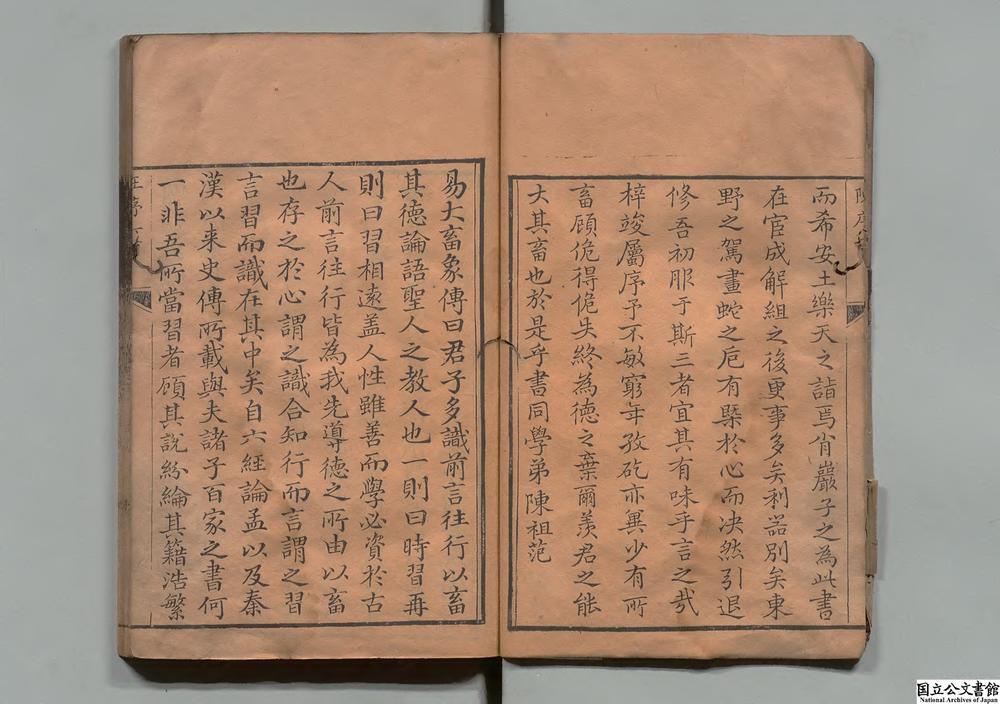 而希安土樂天之詣焉肯巖子之為此書
在宦成解組之後更事多矣利器別矣東
野之駕畫蛇之卮有槩於心而决然引退
修吾初服于斯三者宜其有味乎言之㢤
梓竣屬序予不敏窮年孜矻亦兾少有所
畜顧佹得佹失終為德之棄爾羡君之能
大其畜也於是乎書同學弟陳祖范
易大畜象傳曰君子多識前言往行以畜
其德論語聖人之教人也一則曰時習再
則曰習相遠盖人性雖善而學必資於古
人前言往行皆為我先導德之所由以畜
也存之於心謂之識合知行而言謂之習
言習而識在其中矣自六經論孟以及秦
漢以来史傳所載與夫諸子百家之書何
一非吾所當習者顧其說紛綸其籍浩繁
国立公文書館
National Archives of Japan